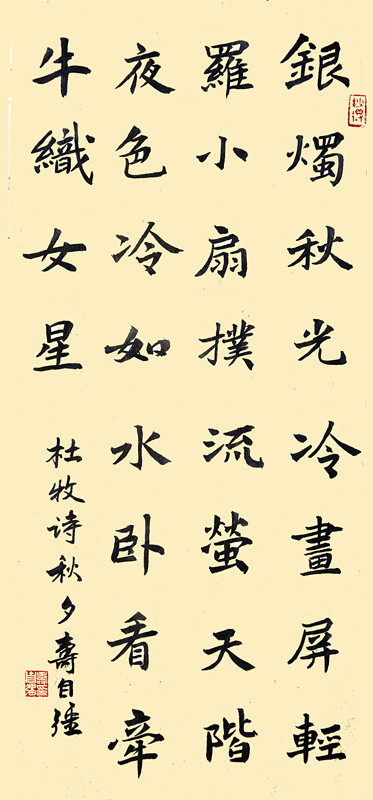 銀燭秋光冷畫屏輕
羅小扇撲流螢天階
夜色冷如水卧看牽
牛織女星
杜牧诗秋夕壽自